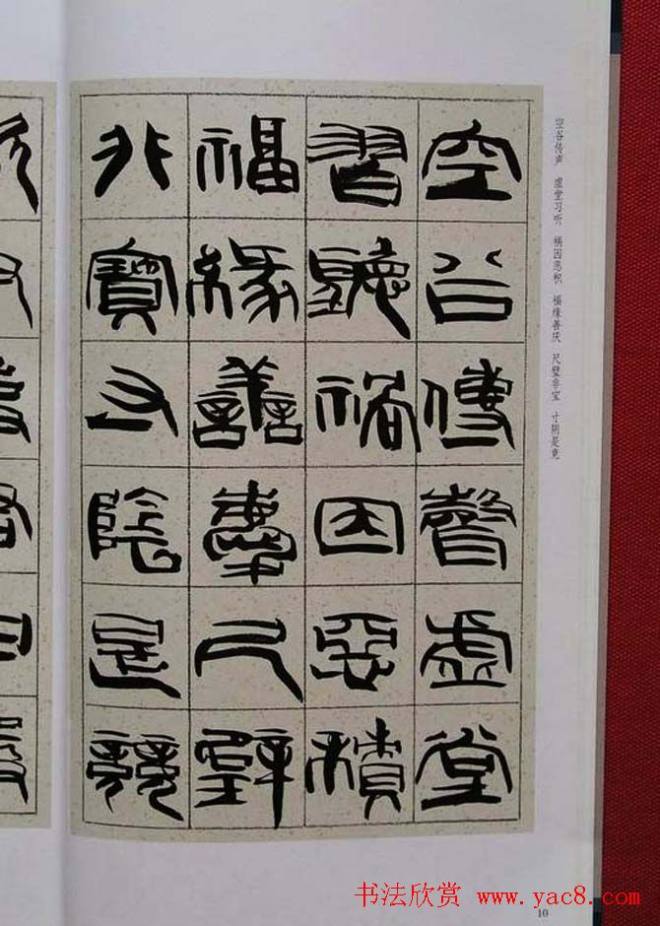 空谷传声 虚堂习听 祸因恶积 福缘善庆 尺璧非宝 寸阴是竞
空谷傳聲虛堂
習聽禍因惡積
福緣善慶尺璧
非寶寸陰是競
书法欣赏 www.yac8.com
10